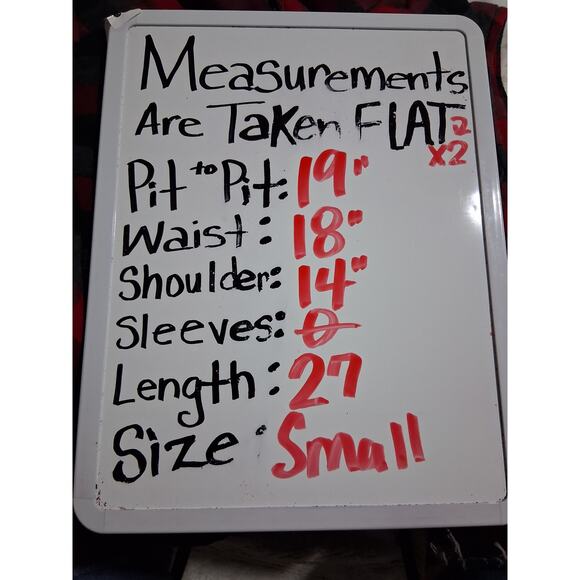 Measurements
Are Taken FLAT 2
x2
Pit to Pit: 19"
Waist: 18"
Shoulder: 14"
Sleeves: 0
Length: 27
Size: Small